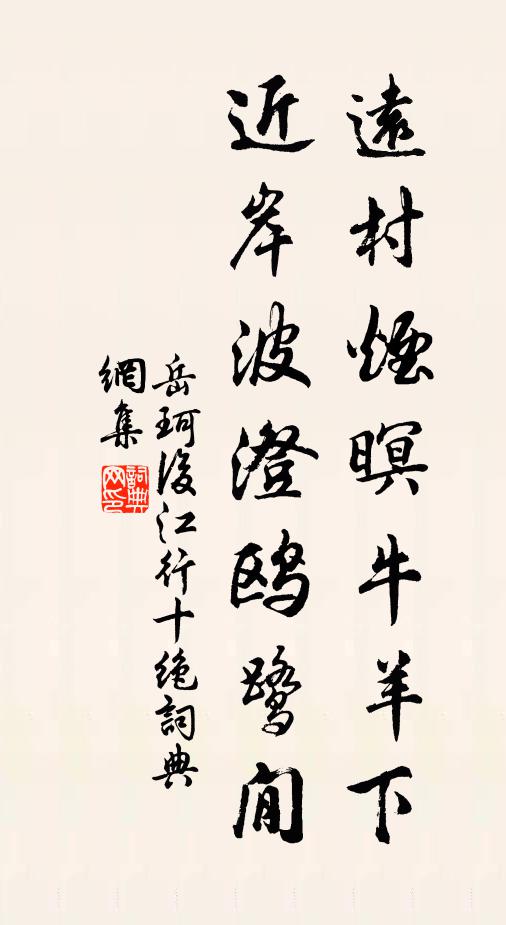 遠村煙暝牛羊下
近岸波澄鸥鷺閒
岳珂後江行十绝詞典
網集
詞典網印